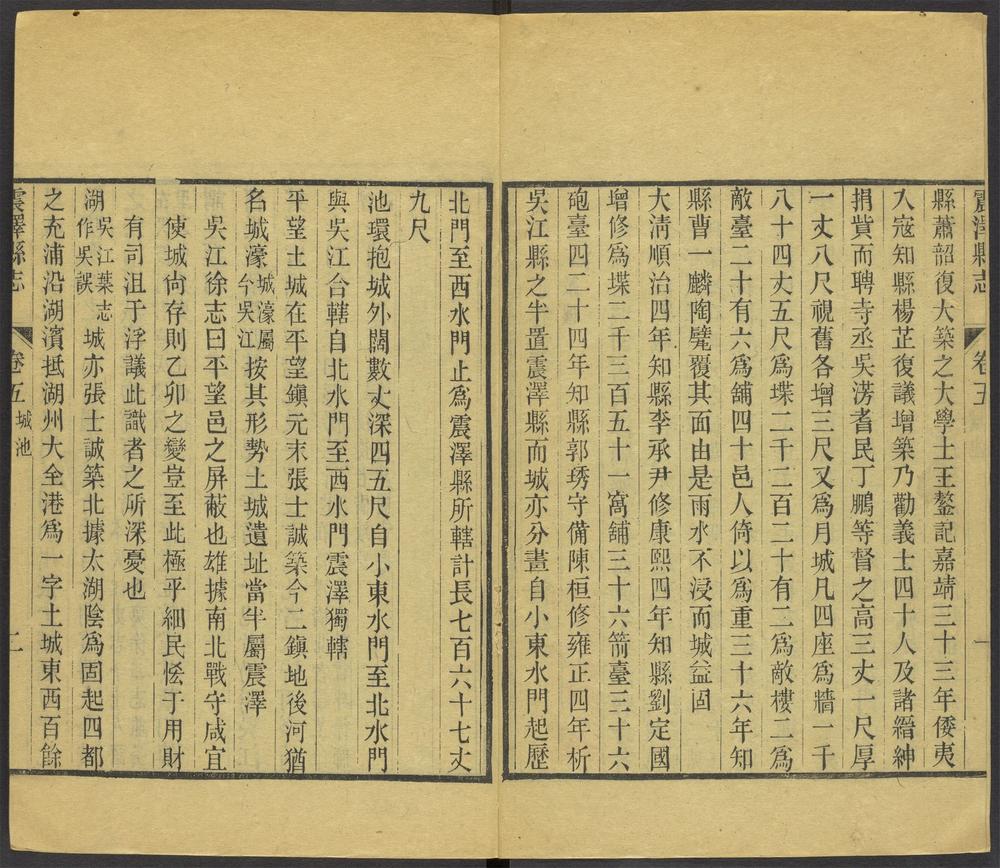 震澤縣志
卷五
一
縣蕭韶復大築之大學士王鏊記嘉靖三十三年倭夷
入寇知縣楊芷復議增築乃勸義士四十人及諸縉紳
捐貲而聘寺丞吳涝耆民丁鵬等督之高三丈一尺厚
一丈八尺視舊各增三尺又爲月城凡四座爲牆一千
八十四丈五尺爲堞二千二百二十有二爲敵樓二爲
敵臺二十有六爲舖四十邑人倚以爲重三十六年知
縣曹一麟陶甓覆其面由是雨水不浸而城益固
大淸順治四年知縣李承尹修康熙四年知縣劉定國
增修爲堞二千三百五十一窩舖三十六箭臺三十六
砲臺四二十四年知縣郭琇守備陳桓修雍正四年析
吳江縣之半置震澤縣而城亦分畫自小東水門起歷
北門至西水門止爲震澤縣所轄計長七百六十七丈
九尺
池環抱城外闊數丈深四五尺自小東水門至北水門
與吳江合轄自北水門至西水門震澤獨轄
平望土城在平望鎭元末張士誠築今二鎭地後河猶
名城濠城濠屬今吳江按其形勢土城遺址當半屬震澤
吳江徐志曰平望邑之屏蔽也雄據南北戰守咸宜
使城尙存則乙卯之變豈至此極乎細民恡于用財
有司沮于浮議此識者之所深憂也
湖吳江葉志作吳誤城亦張士誠築北據太湖陰爲固起四都
之充浦沿湖濱抵湖州大全港爲一字土城東西百餘
震澤縣志
卷五
城池
二